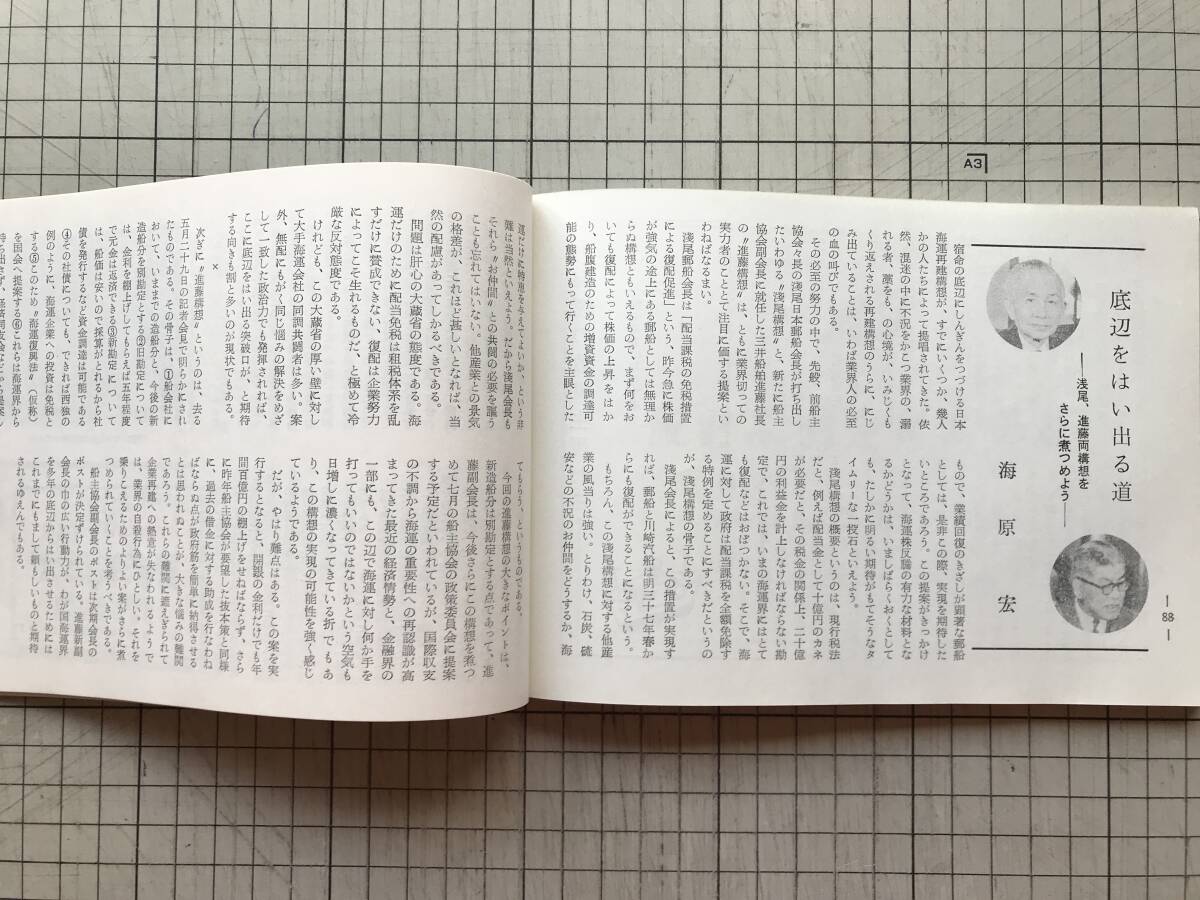 A3
底辺をはい出る道
――浅尾、進藤両構想を
さらに煮つめよう――
海原宏
― 88 ―
宿命の底辺にしんぎんをつづける日本
海運再建構想が、すでにいくつか、幾人
かの人たちによって提唱されてきた。依
然、混迷の中に不況をかこつ業界の、溺
れる者、藁をも、の心境が、いみじくも
くり返えされる再建構想のうらに、にじ
み出ていることは、いわば業界人の必至
の血の叫びでもある。
その必至の努力の中で、先般、前船主
協会々長の浅尾日本郵船会長が打ち出し
たいわゆる〝浅尾構想〟と、新たに船主
協会副会長に就任した三井船舶進藤社長
の〝進藤構想〟は、ともに業界切っての
実力者のこととて注目に価する提案とい
わねばなるまい。
浅尾郵船会長は「配当課税の免税措置
による復配促進」という、昨今急に株価
が強気の途上にある郵船としては無理か
らぬ構想ともいえるもので、まず何をお
いても復配によって株価の上昇をはか
り、船腹建造のための増資資金の調達可
能の態勢にもって行くことを主眼とした
もので、業績回復のきざしが顕著な郵船
としては、是非この際、実現を期待した
いところであろう。この提案がきっかけ
となって、海運株反騰の有力な材料とな
るかどうかは、いましばらくおくとして
も、たしかに明るい期待がもてそうなタ
イムリーな一投石といえよう。
浅尾構想の概要というのは、現行税法
だと、例えば配当金として十億円のカネ
が必要だと、その税金の関係上、二十億
円の利益金を計上しなければならない勘
定で、これでは、いまの海運界にはとて
も復配などはおぼつかない。そこで、海
運に対して政府は配当課税を全額免除す
る特例を定めることにすべきだというの
が、浅尾構想の骨子である。
浅尾会長によると、この措置が実現す
れば、郵船と川崎汽船は明三十七年春か
らにも復配ができることになるという。
もちろん、この浅尾構想に対する他産
業の風当りは強い。とりわけ、石炭、硫
安などの不況のお仲間をどうするか、海
運だけに特恵を与えてよいか、という非
難は当然といえよう。だから浅尾会長も
それら〝お仲間〟との共闘の必要を謳う
ことも忘れてはいない。他産業との景気
の格差が、これほど甚しいとなれば、当
然の配慮があってしかるべきである。
問題は肝心の大蔵省の態度である。海
運だけのために配当免税は租税体系を乱
すだけに賛成できない、復配は企業努力
によってこそ生れるものだ、と極めて冷
厳な反対態度である。
けれども、この大蔵省の厚い壁に対し
て大手海運会社の同調共調者は多い。案
外、無配にもがく同じ悩みの解決をめざ
して一致した政治力でも発揮されれば、
ここに底辺をはい出る突破口が、と期待
する向きも割と多いのが現状でもある。
×
次ぎに〝進藤構想〟というのは、去る
五月二十九日の記者会見で明らかにされ
たものである。その骨子は、①船会社に
おいて、いままでの造船分と、今後の新
造船分を別勘定とする②旧勘定について
は、金利を棚上げしてもらえば五年程度
で元金は返済できる③新勘定について
は、船価は安いので採算がとれるから社
債を発行するなど資金調達は可能である
④その社債についても、できれば西独の
例のように、海運企業への投資は免税と
する⑤このため〝海運復興法〟(仮称)
を国会へ提案する⑥これらは海運界から
てもらう、というものである。
今回の進藤構想の大きなポイントは、
新造船分は別勘定とする点であって、進
藤副会長は、今後さらにこの構想を煮つ
めて七月の船主協会の政策委員会に提案
する予定だといわれているが、国際収支
の不調から海運の重要性への再認識が高
まってきた最近の経済情勢と、金融界の
一部にも、この辺で海運に対し何か手を
打ってもいいのではないかという空気も
日増しに濃くなってきている折でもあ
り、この構想の実現の可能性を強く感じ
ているようである。
だが、やはり難点はある。この案を実
行するとなると、開銀の金利だけでも年
間百億円の棚上げをせねばならず、さら
に昨年船主協会が要望した抜本策と同様
に、過去の借金に対する助成を行なわね
ばならぬ点が政府筋を簡単に納得させる
とは思われぬことが、大きな悩みの難関
であろう。これらの難関に遮えぎられて
企業再建への熱意が失なわれるようで
は、業界の自殺行為にひとしい。それを
乗りこえるためのよりよい案がさらに煮
つめられていくことを考うべきである。
船主協会副会長のポストは次期会長の
ポストが決定ずけられている。進藤新副
会長の巾の広い行動力が、わが国海運界
を多年の底辺からはい出させるためには
これまでにもまして頼もしいものと期待
されるゆえんでもある。